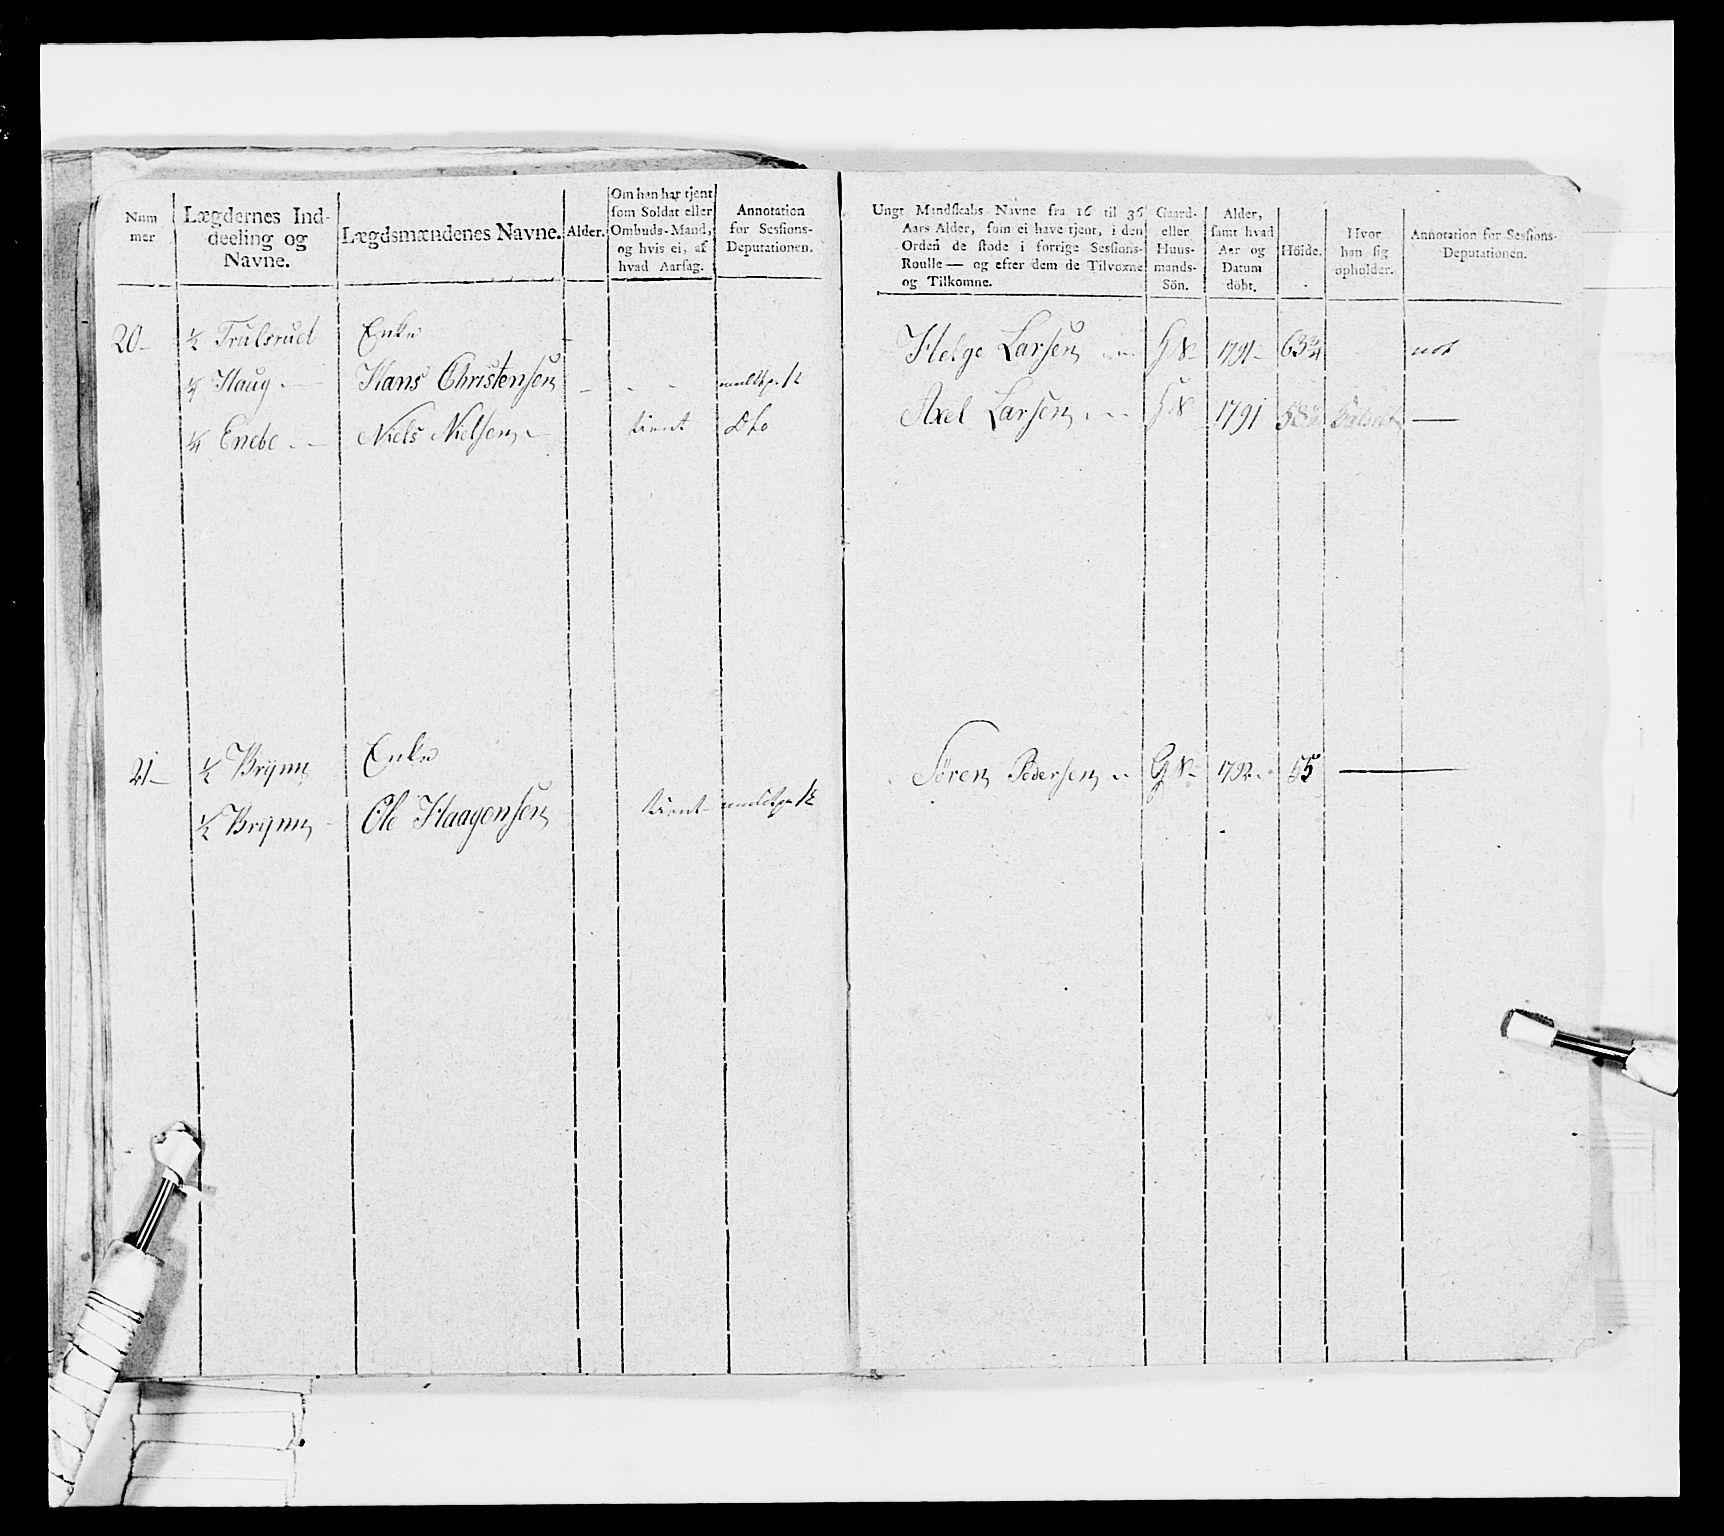 Num mer
Lægdernes Inddeeling og Navne.
Lægdsmændenes Navne.
Alder.
Om han har tjent
som Soldat eller
Ombuds-Mand,
og hvis ei, af
hvad Aarsag.
Annotation
for Sessions-
Deputationen.
Ungt Mandskabs Navne fra 16 til 36
Aars Alder, som ei have tjent, i den
Orden de stode i forrige Sessions-
Roulle — og efter dem de Tilvoxne
og Tilkomne.
Gaard-
eller
Huus-
mands-
Sön.
Alder,
samt hvad
Aar og
Datum
döbt.
Höide.
Hvor
han sig
opholder.
Annotation for Sessions-
Deputationen.
20 ½ Trulsrud Enke
¼ Haug Hans Christensen
¼ Enebe Niels Nielsen tient Dto
Helge Larsen 1791 63¾
Axel Larsen 1791
21 ½ Brynn Enke
½ Brynn Ole Haagensen tient
Sören Pedersen 1792 55